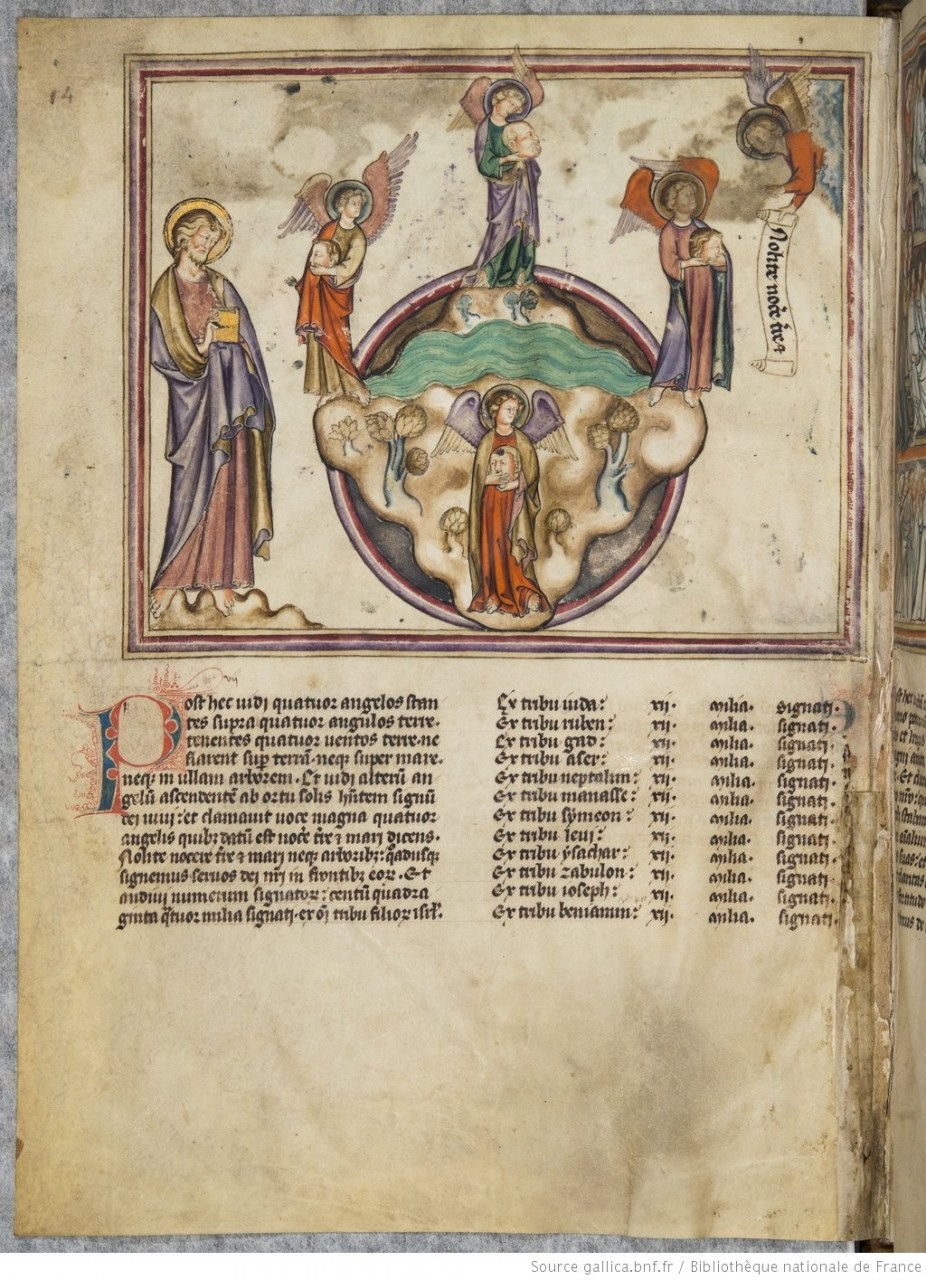 14
Nolite noce͛ t͛re ⁊
vii
Post hec uidi quatuor angelos stan
tes supra quatuor angulos terre.
tenentes quatuor uentos terre. ne
flarent sup̱ terrā. neq; super mare.
neq; in ullam arborem. Et uidi alterū an
gelū ascendentē ab ortu solis hn̄tem signū
dei uiui: et clamauit uoce magna quatuor
angelis quib; datū est noce͛ t͛re ⁊ mari dicens.
Nolite nocere t͛re ⁊ mari neq; arborib;: q̄adusq;
signemus seruos dei nr̄i in frontib; eoꝝ. Et
audiui numerum signatoꝝ: centū quadra
ginta q̄tuor milia signati. ex oı̄ tribu filioꝝ isrl̄.
Ex tribu iuda: xii. milia. signati.
Ex tribu ruben: xii. milia. signati.
Ex tribu gad: xii. milia. signati.
Ex tribu aser: xii. milia. signati.
Ex tribu neptalim: xii. milia. signati.
Ex tribu manasse: xii. milia. signati.
Ex tribu symeon: xii. milia. signati.
Ex tribu leui: xii. milia. signati.
Ex tribu ysachar: xii. milia. signati.
Ex tribu zabulon: xii. milia. signati.
Ex tribu ioseph: xii. milia. signati.
Ex tribu beniamin: xii. milia. signati.
Source gallica.bnf.fr / Bibliothèque nationale de France